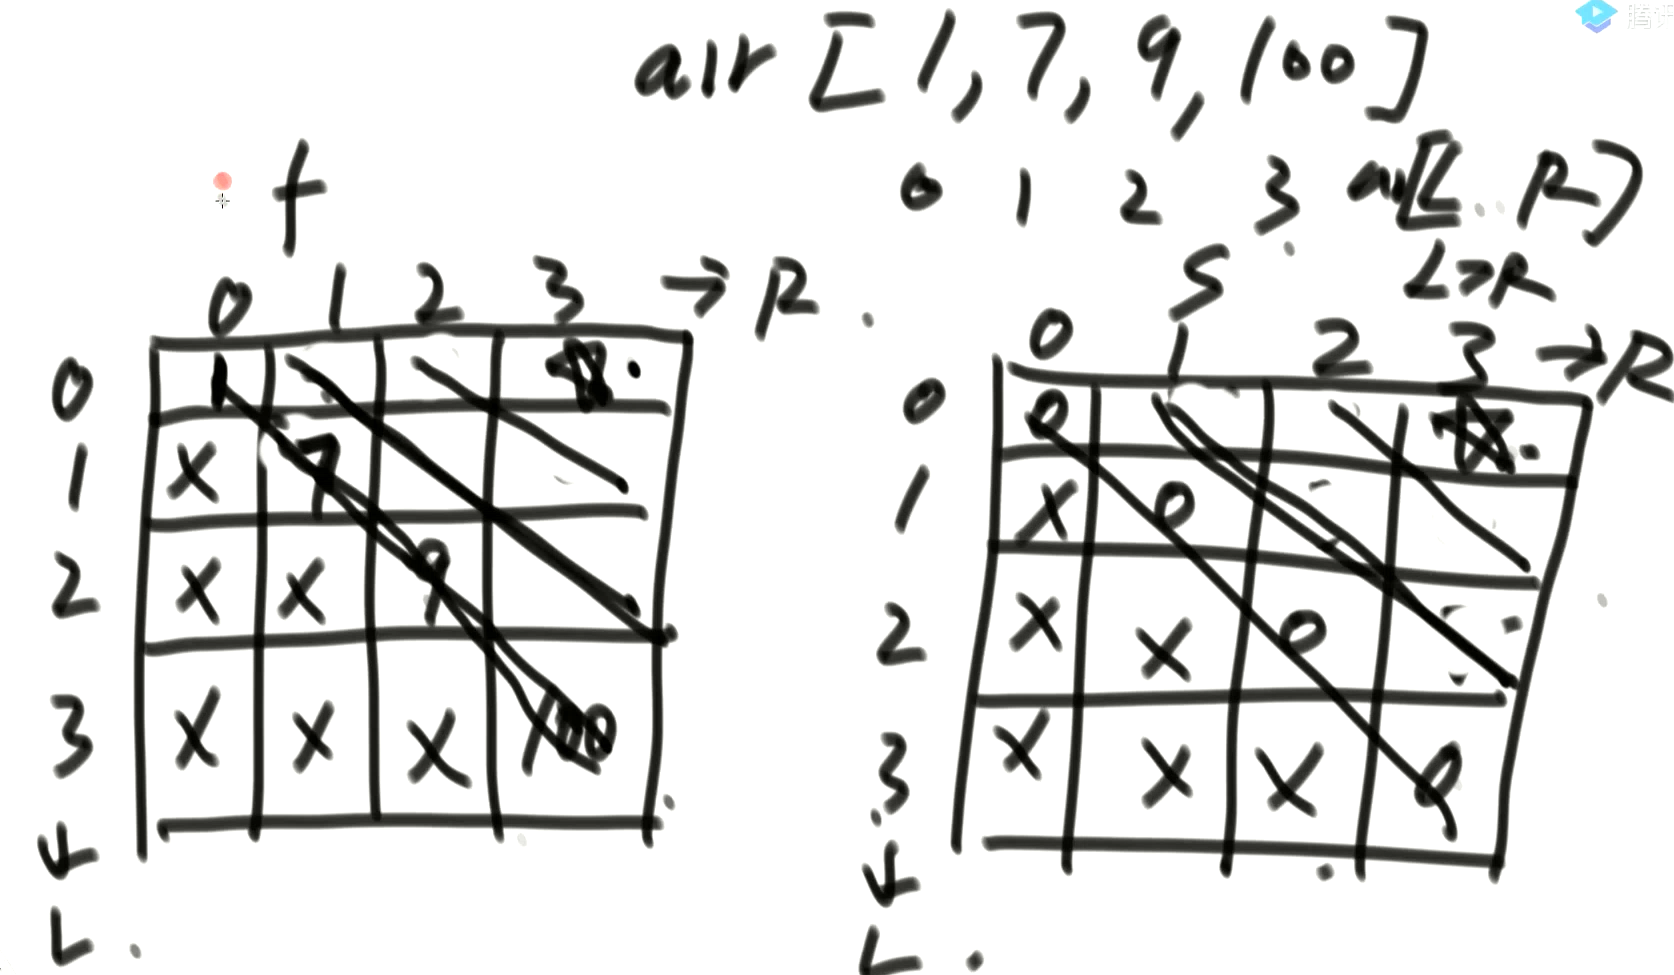 arr [1, 7, 9, 100]
0 1 2 3 arr[L..R]
f
S
L>R
0 1 2 3 → R
0 1
1 X 7
2 X X 9
3 X X X 100
↓
L
0 1 2 3 → R
0 0
1 X 0
2 X X 0
3 X X X 0
↓
L